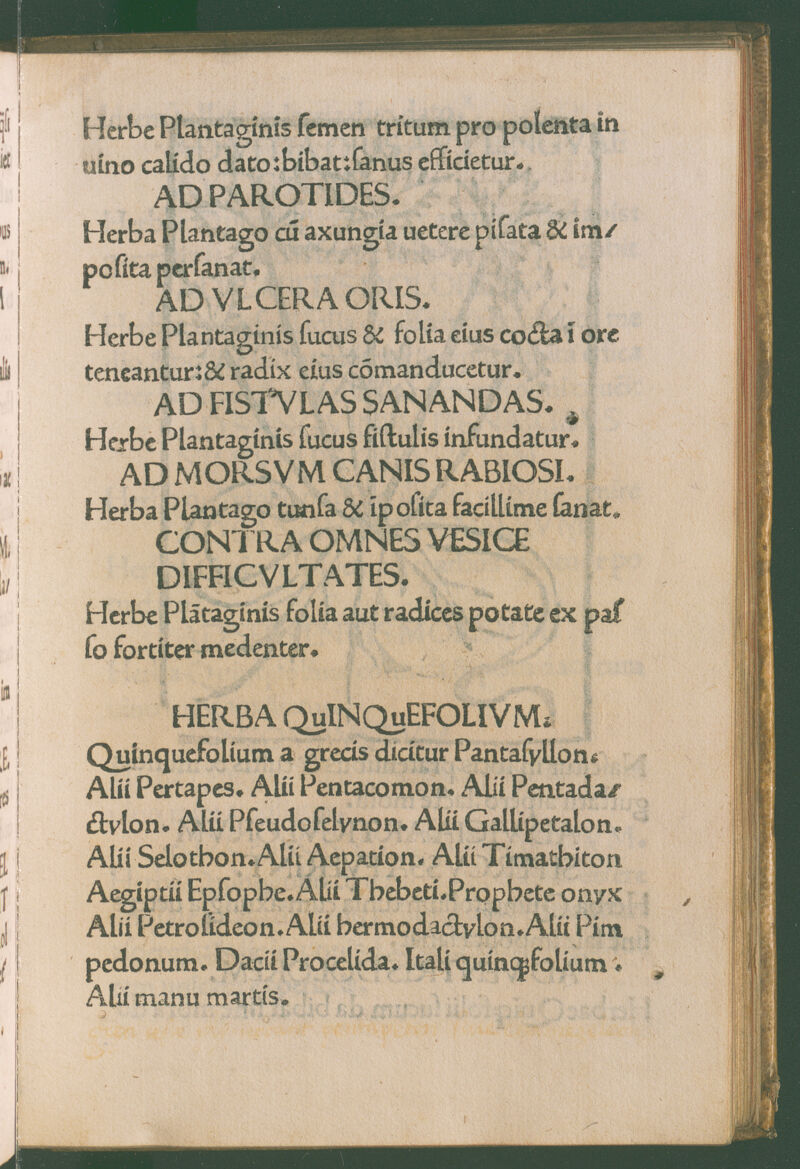 Herbe Plantaginis ſemen tritum pro polenta in
uino calido dato:bibat:ſanus efficietur.
AD PAROTIDES.
Herba Plantago cū axungia uetere piſata & im/
poſita perſanat.
AD VLCERA ORIS.
Herbe Plantaginis ſucus & folia eius cocta ī ore
teneantur:& radix eius cōmanducetur.
AD FISTVLAS SANANDAS.
Herbe Plantaginis ſucus fiſtulis infundatur.
AD MORSVM CANIS RABIOSI.
Herba Plantago tunſa & īpoſita facillime ſanat.
CONTRA OMNES VESICE
DIFFICVLTATES.
Herbe Plātaginis folia aut radices potate ex paſ
ſo fortiter medenter.
HERBA QuINQuEFOLIVM.
Quinquefolium a grecis dicitur Pantaſyllon.
Alii Pertapes. Alii Pentacomon. Alii Pentada/
ctylon. Alii Pſeudoſelynon. Alii Gallipetalon.
Alii Selothon. Alii Aepation. Alii Timathiton
Aegiptii Epſophe. Alii Thebeti. Prophete onyx
Alii Petroſideon. Alii hermodactylon. Alii Pim
pedonum. Dacii Procelida. Itali quinqꝫfolium .
Alii manu martis.